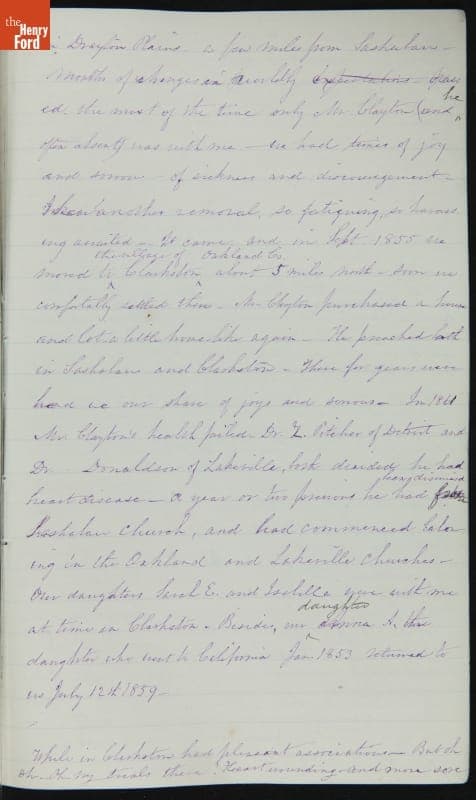 the
Henry
Ford
in Drayton Plains - a few miles from Sashabaw -
Months of changes in worldly expectations - pass
ed the most of the time only Mr. Clayton (and he
often absent) was with me - we had times of joy
and sorrow - of sickness and discouragement -
another removal, so fatiguing, so harass
ing awaited - It came, and in Sept. 1855 we
the village of Oakland Co.
moved to Clarkston about 5 miles north - soon we
comfortably settled there - Mr Clayton purchased a house
and lot a little home-like again - He preached both
in Sashabaw and Clarkston - There for years
had we our share of joys and sorrows - In 1861
Mr. Clayton's health failed - Dr. Z. Pitcher of Detroit and
Dr. Donaldson of Lakeville, both decided he had
been dismissed
heart disease - a year or two previous he had from
Sashabaw church, and had commenced labor
ing in the Oakland and Lakeville churches -
Our daughters Sarah E. and Isabella were with me
daughter
at time in Clarkston - Besides, our Anna A. the
daughter who went to California Jan 1853 returned to
us July 12th 1859 -
While in Clarkston had pleasant associations - But oh
oh - oh my trials there! Heart wounding - and more sore